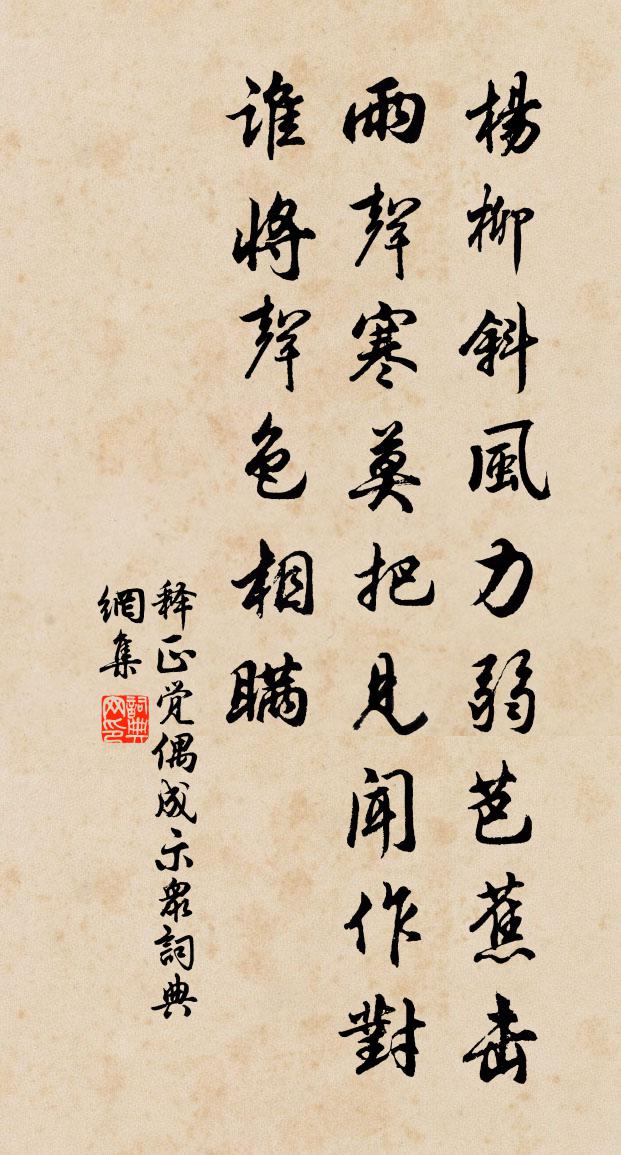 楊柳斜風力弱芭蕉击
雨聲寒莫把見聞作對
谁將聲色相瞞
释正觉偶成示衆詞典
網集
詞典
网印